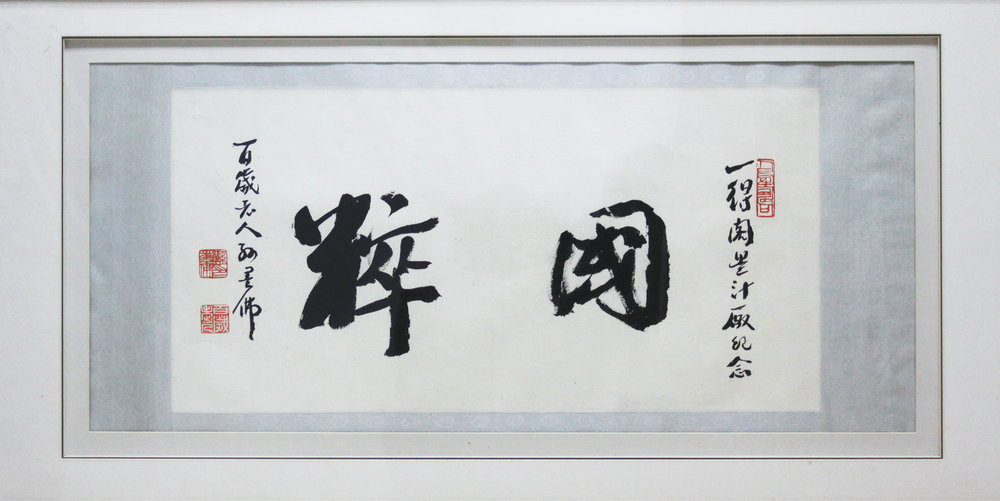 一得阁墨汁厰纪念
國粹
百歲老人孙墨佛